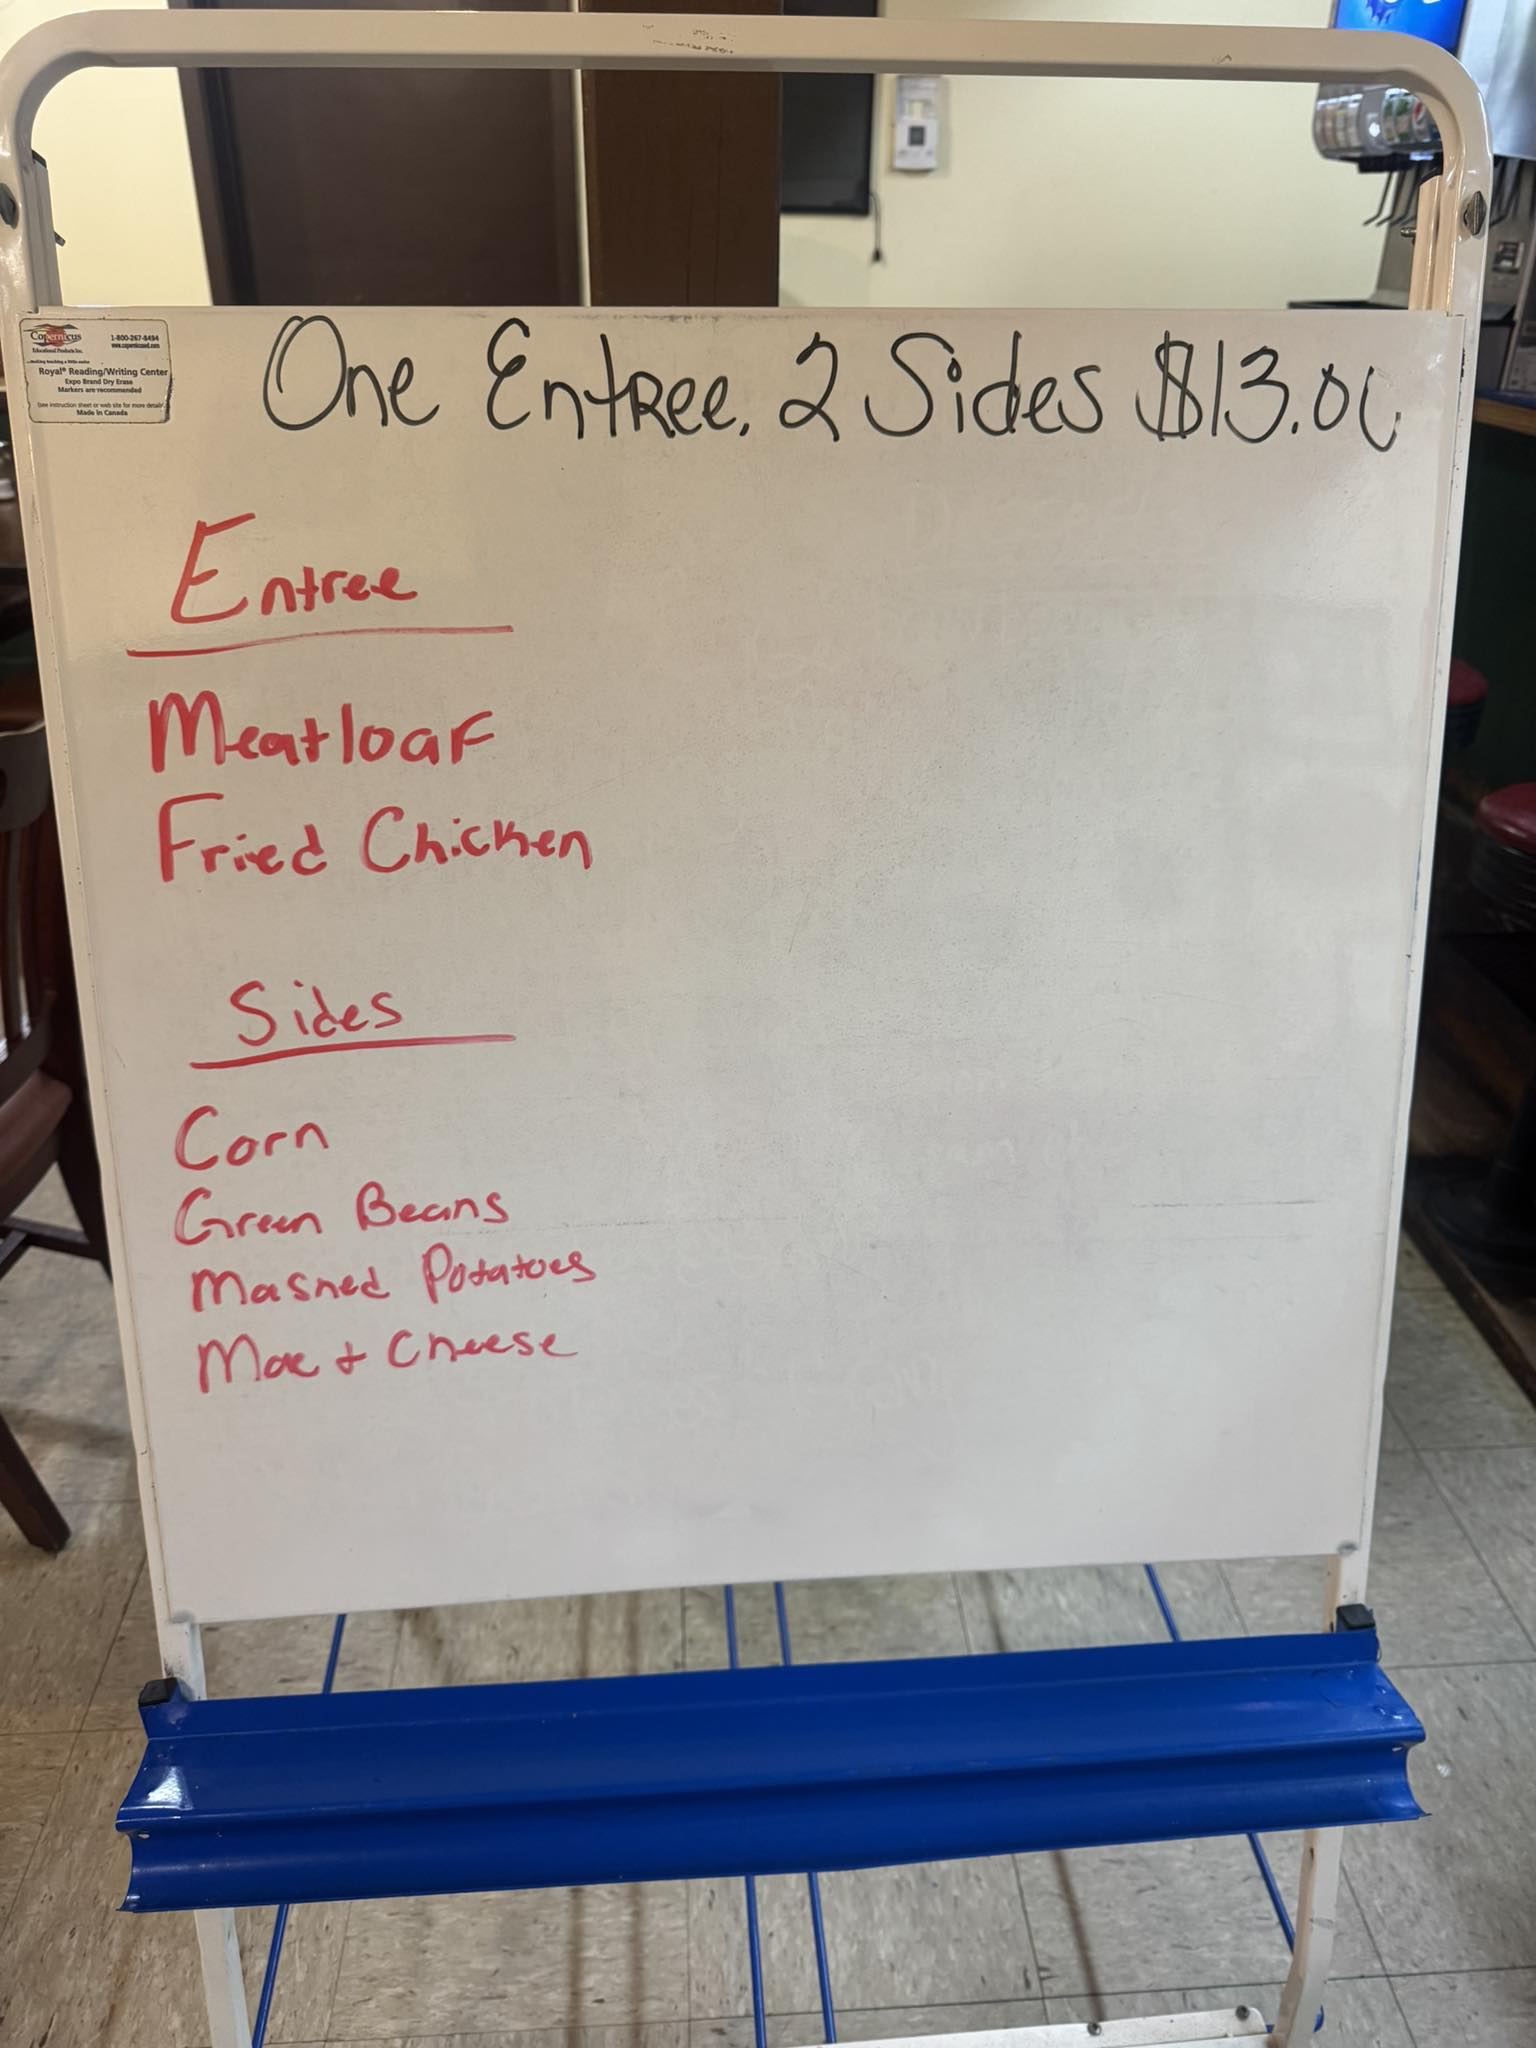 One Entree, 2 Sides $13.00
Copernicus
Educational Products Inc.
1-800-267-8494
www.copernicused.com
Royal® Reading/Writing Center
Expo Brand Dry Erase
Markers are recommended
(see instruction sheet or web site for more detail)
Made in Canada
Entree
Meatloaf
Fried Chicken
Sides
Corn
Green Beans
Mashed Potatoes
Mac + Cheese